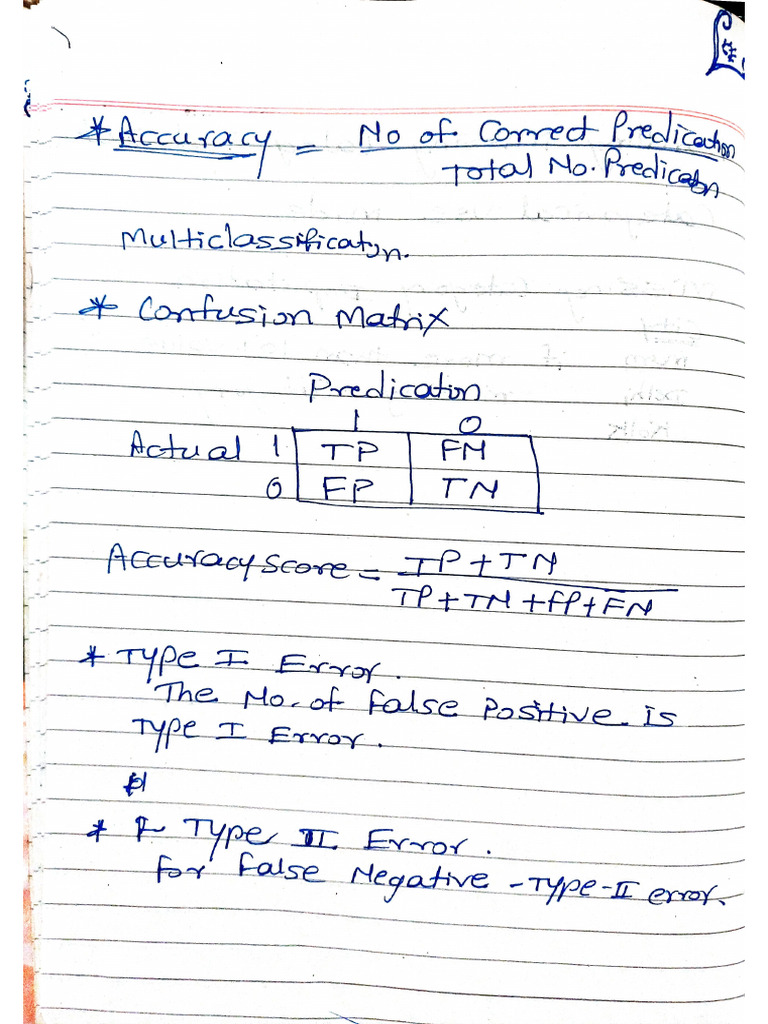 * Accuracy = No of Correct Predication
Total No. Predication
Multiclassification.
* Confusion Matrix
Predication
1 0
Actual 1 TP FN
0 FP TN
Accuracy Score = TP + TN
TP + TN + FP + FN
* Type I Error.
The No. of False Positive is
Type I Error.
* Type II Error.
for False Negative - Type-II error.